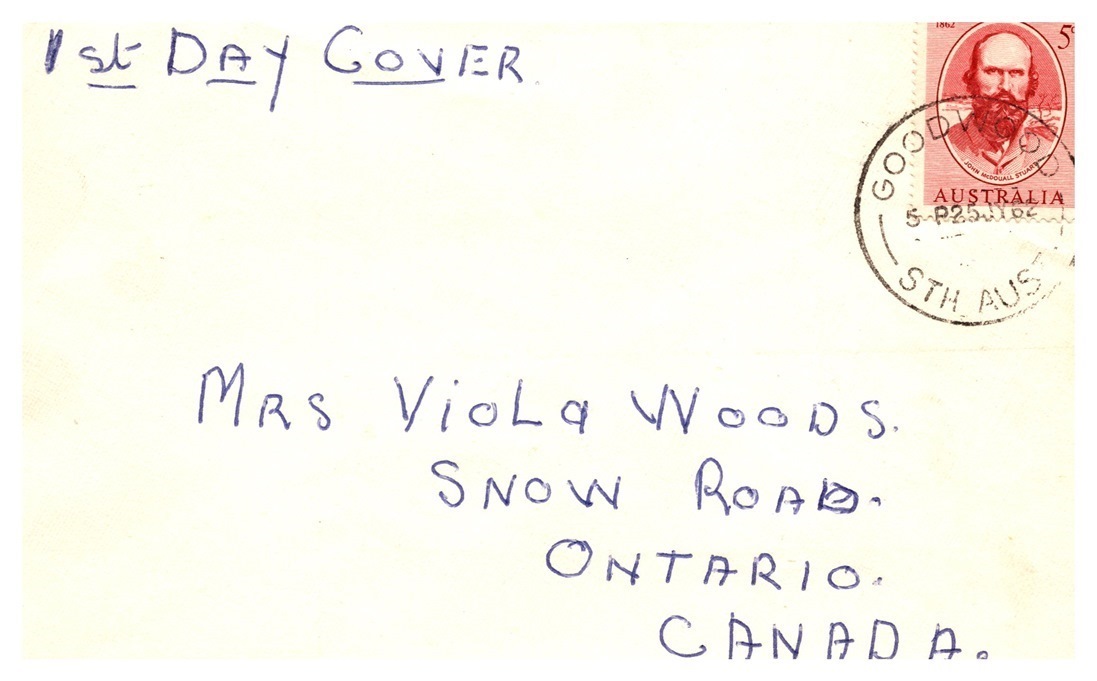 1st DAY COVER
1862
5c
JOHN McDOUALL STUART
AUSTRALIA
GOODWOOD
5 P25 JY 62
STH. AUST
MRS VIOLA WOODS.
SNOW ROAD.
ONTARIO.
CANADA.